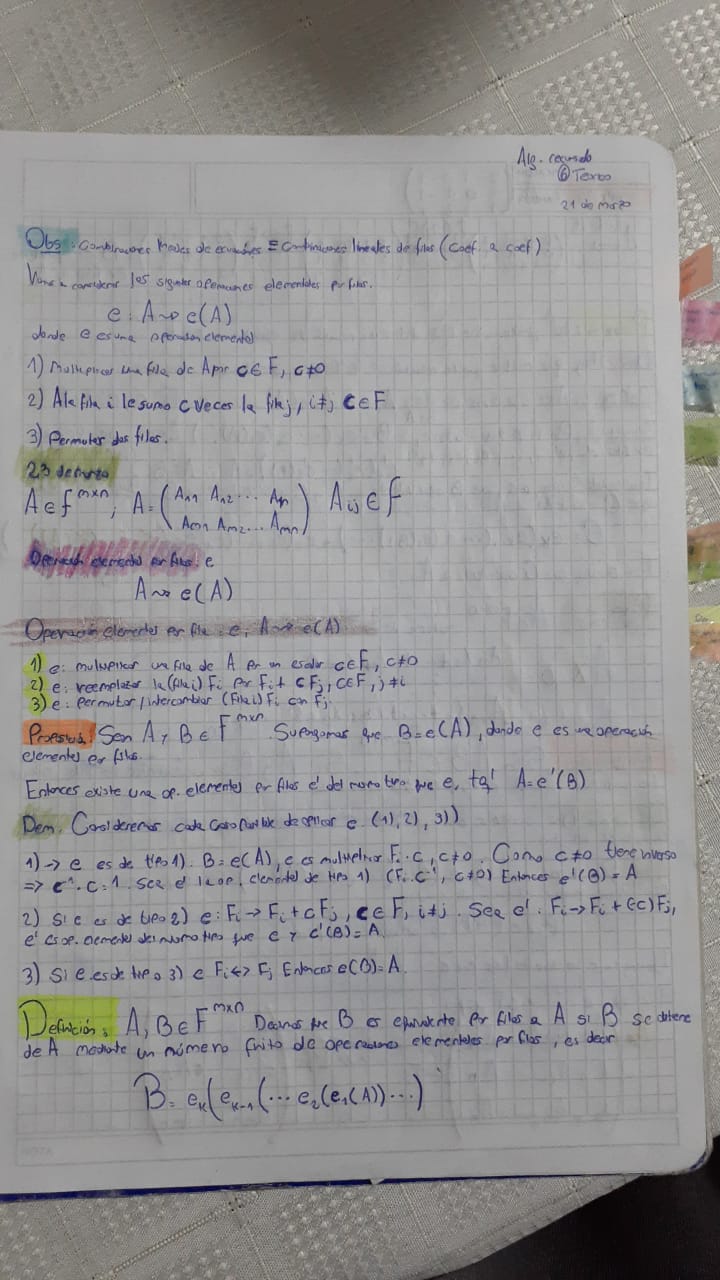 Alg. recursado
⑥ Teorico
21 de Marzo
Obs: Combinaciones lineales de ecuaciones ≡ Combinaciones lineales de filas (Coef. a coef).
Vamos a considerar las siguientes operaciones elementales por filas.
e: A ⇝ e(A)
donde e es una operacion elemental
1) Multiplicar una fila de A por c ∈ F, c≠0
2) A la fila i le sumo c veces la fila j, i≠j c ∈ F
3) Permutar dos filas.
23 de marzo
A ∈ F^{mxn}; A = (A11 A12 ... A1n
Am1 Am2 ... Amn) Aij ∈ F
Operación elemental por filas: e
A ⇝ e(A)
Operación elemental por fila: e, A ⇝ e(A)
1) e: multiplicar una fila de A por un escalar c∈F, c≠0
2) e: reemplazar la (fila i) Fi por Fi + cFj, c∈F, j≠i
3) e: Permutar / intercambiar (Fila i) Fi con Fj.
Sean A y B ∈ F^{mxn}. Supongamos que B = e(A), donde e es una operación
elemental por filas
Entonces existe una op. elemental por filas e' del mismo tipo que e, tq' A = e'(B)
Dem. Consideremos cada caso posible de aplicar e (1), 2), 3))
1) → e es de tipo 1). B = e(A), e es multiplicar Fi · c, c≠0. Como c≠0 tiene inverso
=> c⁻¹. c = 1. Sea e' la op. elemental de tipo 1) (Fi. c⁻¹, c≠0) Entonces e'(B) = A
2) Si e es de tipo 2) e: Fi → Fi + cFj, c∈F, i≠j. Sea e': Fi → Fi + (-c)Fj,
e' es op. elemental del mismo tipo que e y e'(B) = A
3) Si e es de tipo 3) e Fi ↔ Fj Entonces e(B) = A.
Definición: A, B ∈ F^{mxn} Decimos que B es equivalente por filas a A si B se obtiene
de A mediante un número finito de operaciones elementales por filas, es decir
B = ek(ek-1(... e2(e1(A))...)